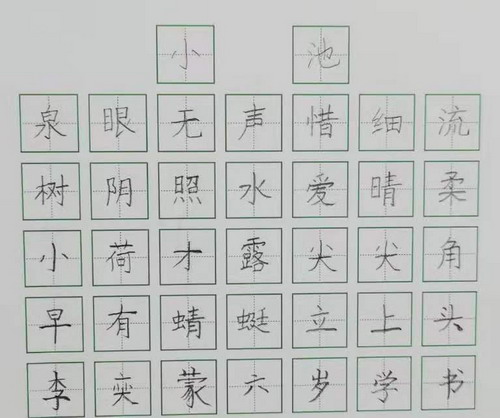 小池
泉眼无声惜细流
树阴照水爱晴柔
小荷才露尖尖角
早有蜻蜓立上头
李奕蒙六岁学书